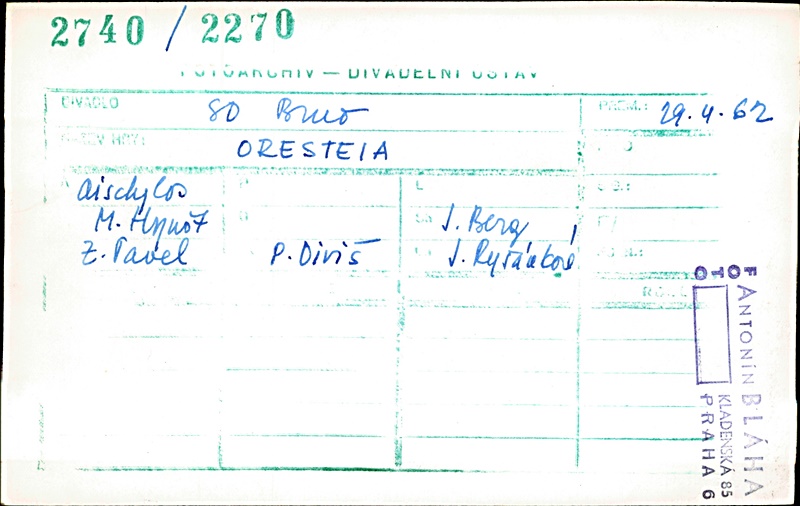 2740 / 2270
FOTOARCHIV — DIVADELNÍ ÚSTAV
DIVADLO SD Brno PREM.: 29.4.62
NÁZEV HRY: ORESTEIA
Aischylos
M. Hynšt J. Berg
Z. Pavel P. Diviš J. Ryšánková
FOTO
ANTONÍN BLÁHA
KLADENSKÁ 85
PRAHA 6